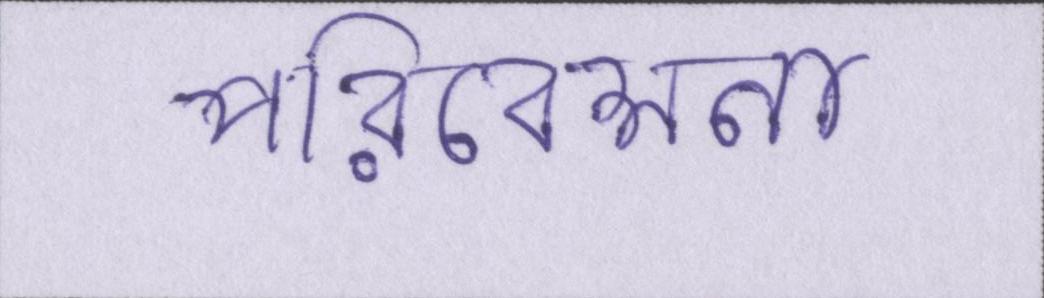 পরিবেশনা